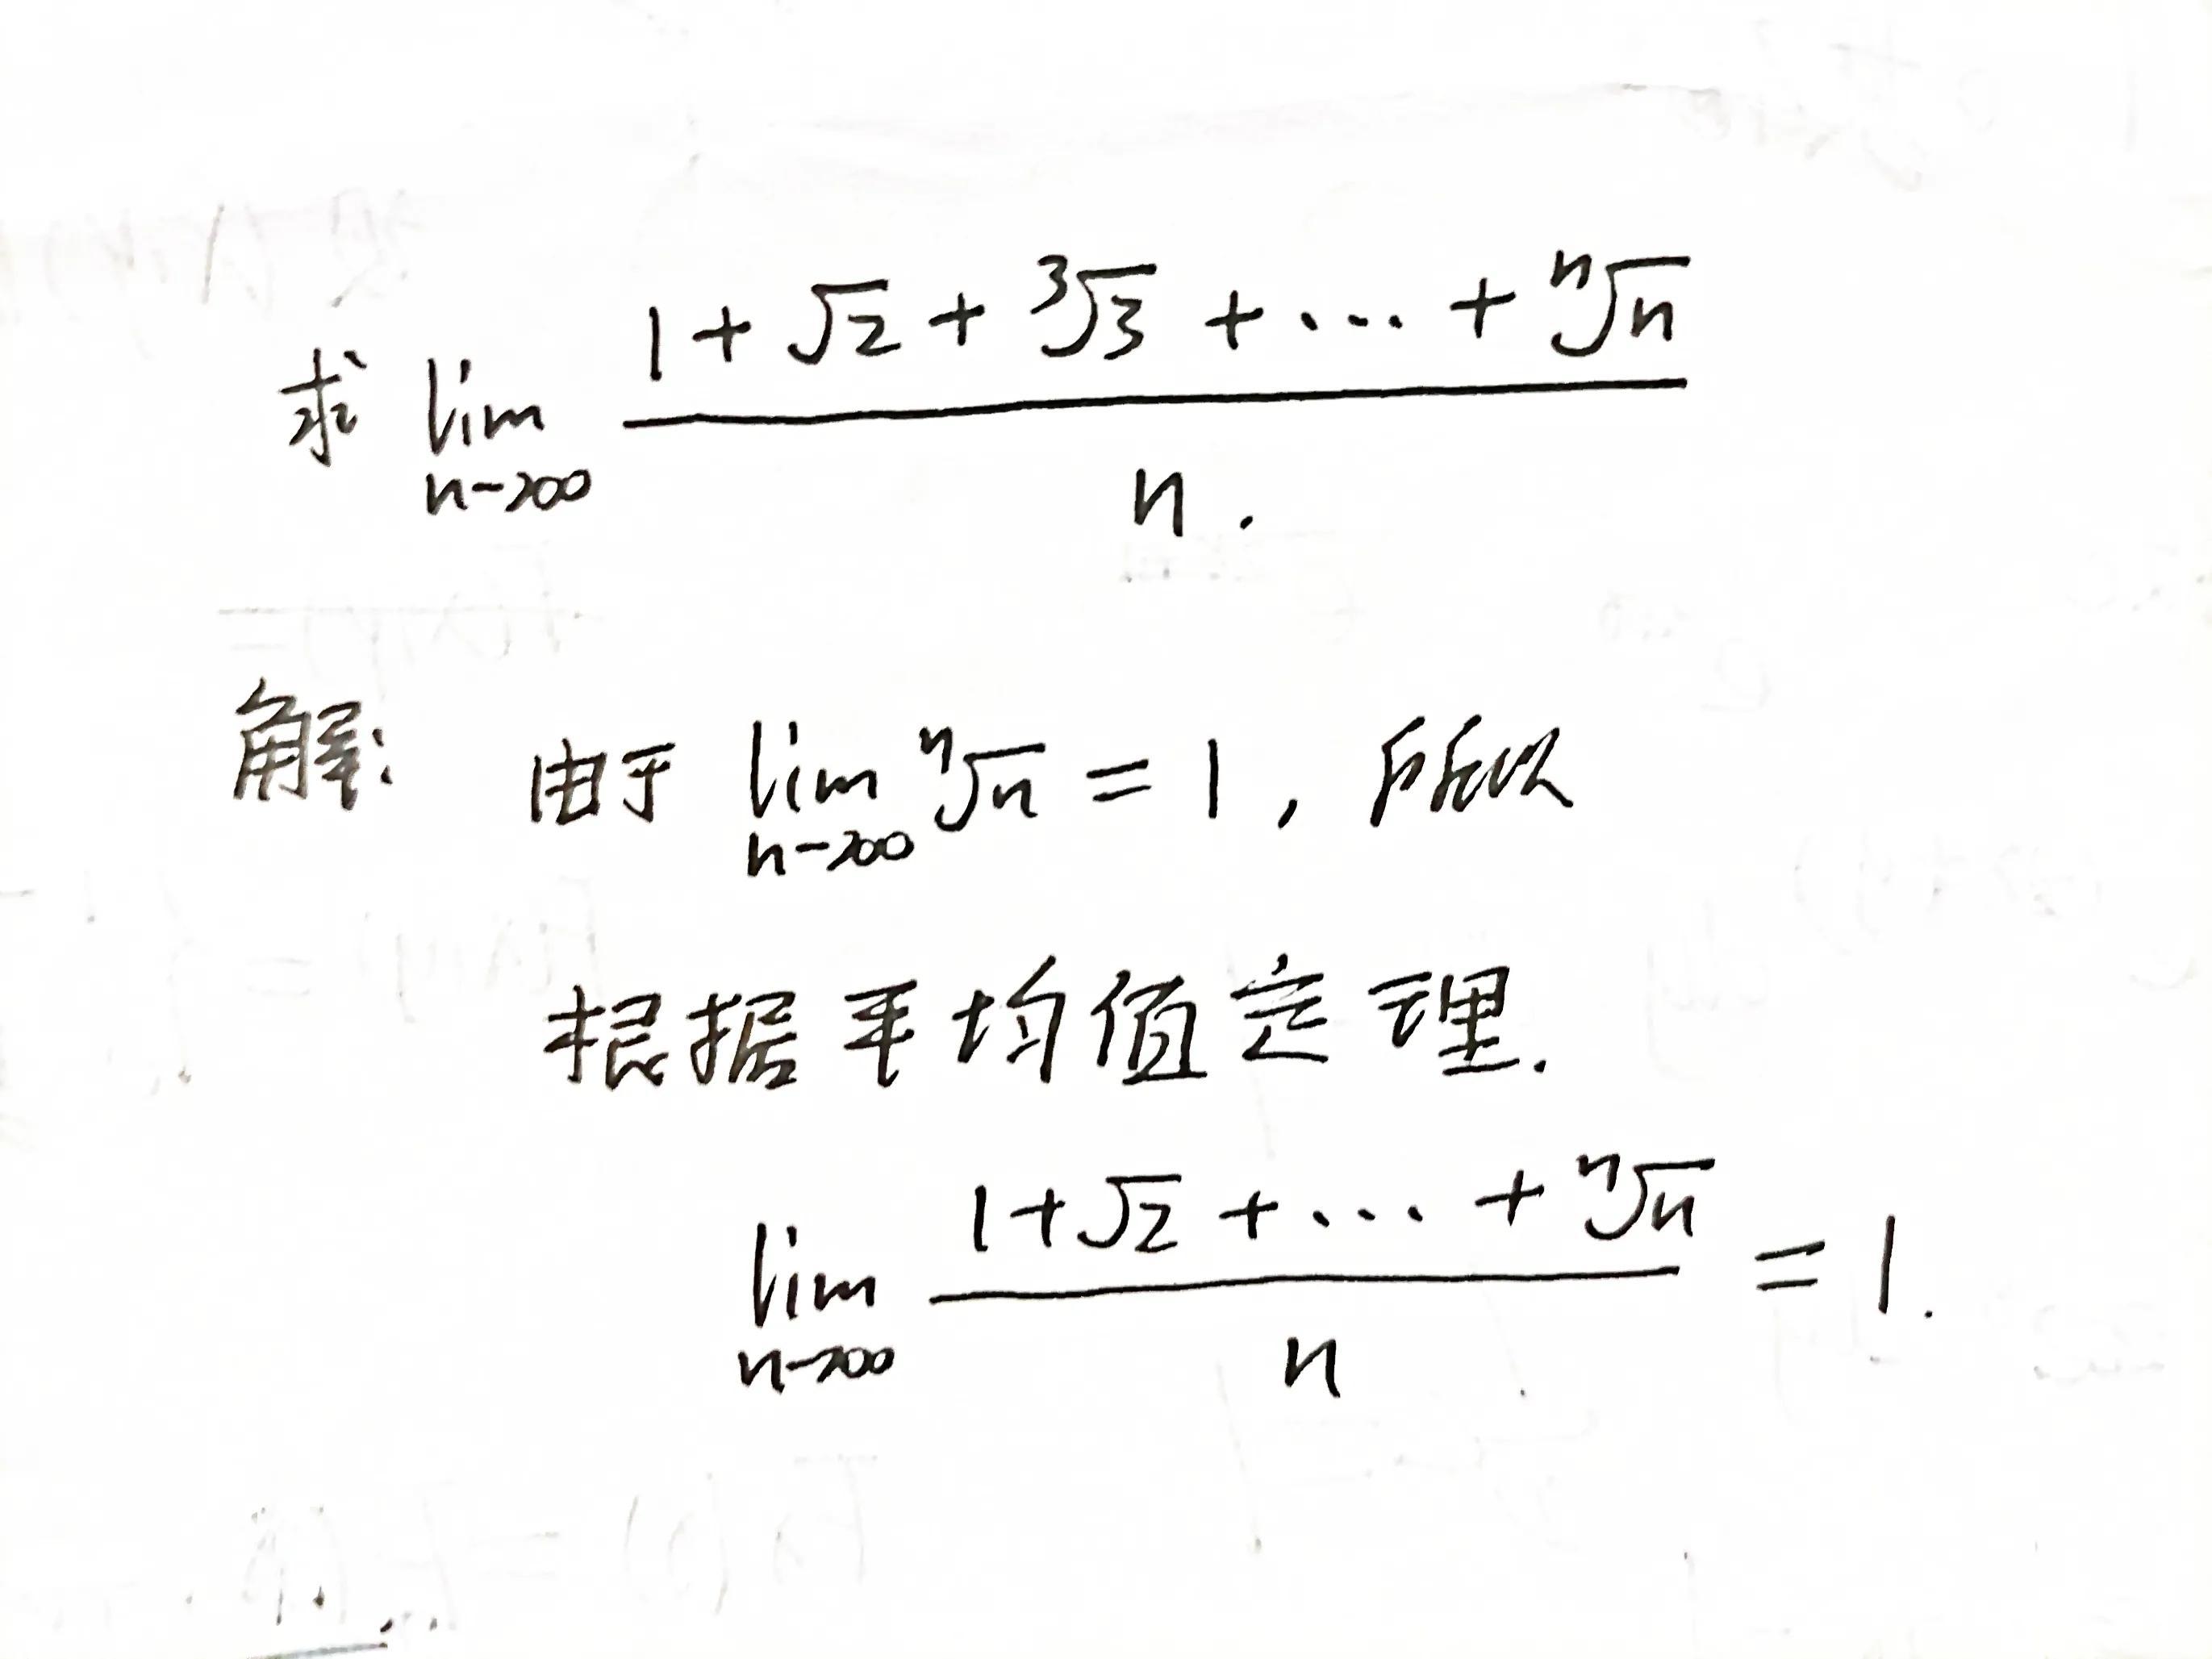 求 lim n→∞ (1+√2+³√3+…+ⁿ√n)/n.
解: 由于 lim n→∞ ⁿ√n = 1, 所以
根据平均值定理.
lim n→∞ (1+√2+…+ⁿ√n)/n = 1.